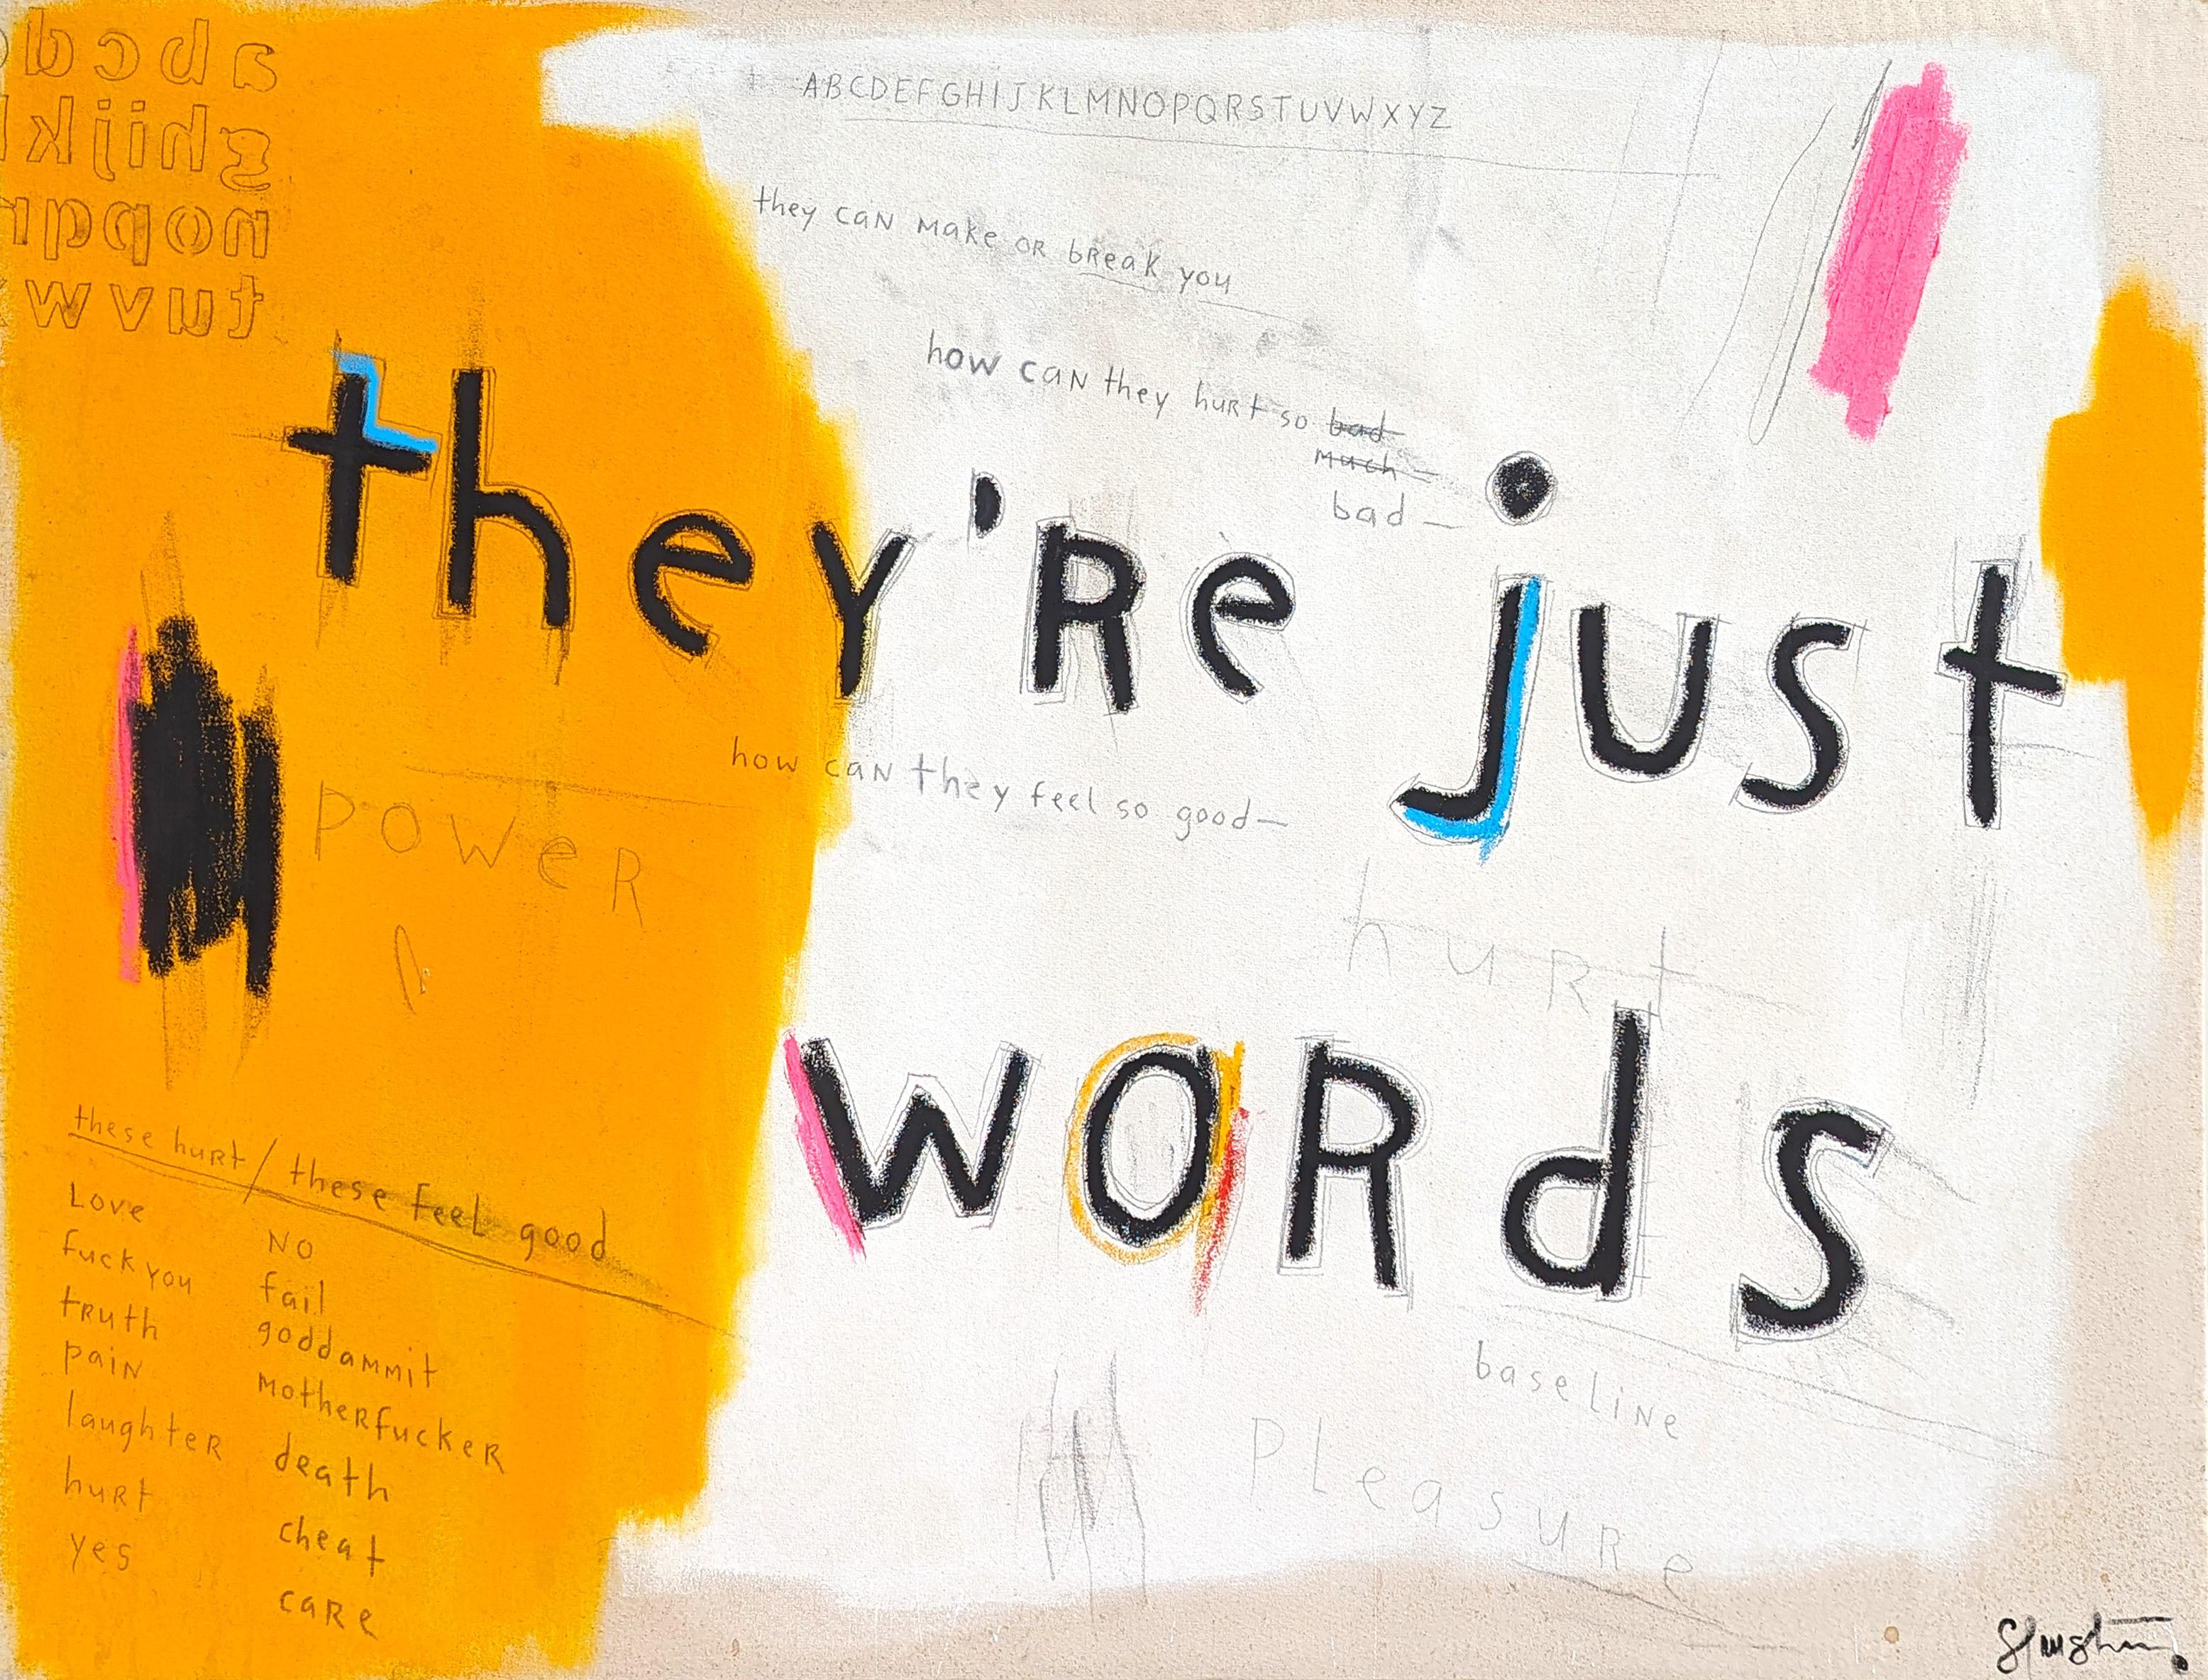 abcd
ghijk
nopqr
tuvw
ABCDEFGHIJKLMNOPQRSTUVWXYZ
they can make or break you
how can they hurt so bad
much
bad
they're just
how can they feel so good
power
hurt
words
these hurt / these feel good
Love
fuck you
truth
pain
laughter
hurt
yes
NO
fail
goddammit
motherfucker
death
cheat
care
baseline
Pleasure